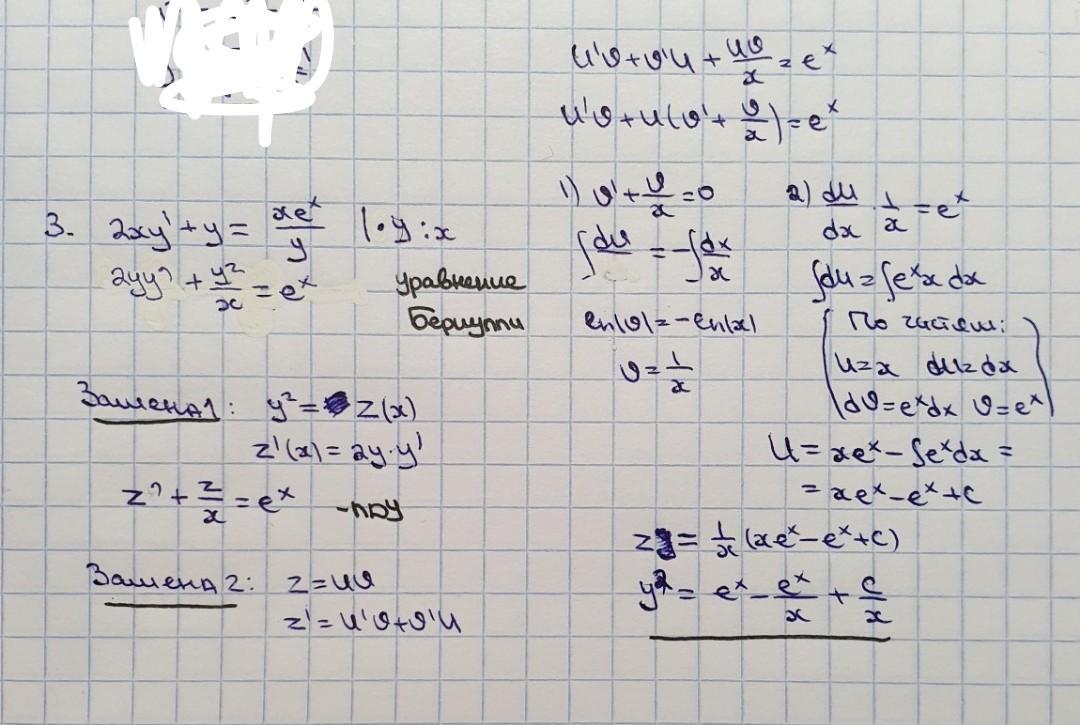 3. 2xy' + y = xeˣ/y | · y : x
2yy' + y²/x = eˣ
уравнение
Бернулли
Замена 1: y² = z(x)
z'(x) = 2y·y'
z' + z/x = eˣ - ЛДУ
Замена 2: z = uv
z' = u'v + v'u
u'v + v'u + uv/x = eˣ
u'v + u(v' + v/x) = eˣ
1) v' + v/x = 0
∫ dv = -∫ dx/x
ln|v| = -ln|x|
v = 1/x
2) du/dx · 1/x = eˣ
∫du = ∫eˣx dx
По частям:
u = x du = dx
dv = eˣdx v = eˣ
u = xeˣ - ∫eˣdx =
= xeˣ - eˣ + c
z = 1/x (xeˣ - eˣ + c)
y² = eˣ - eˣ/x + c/x